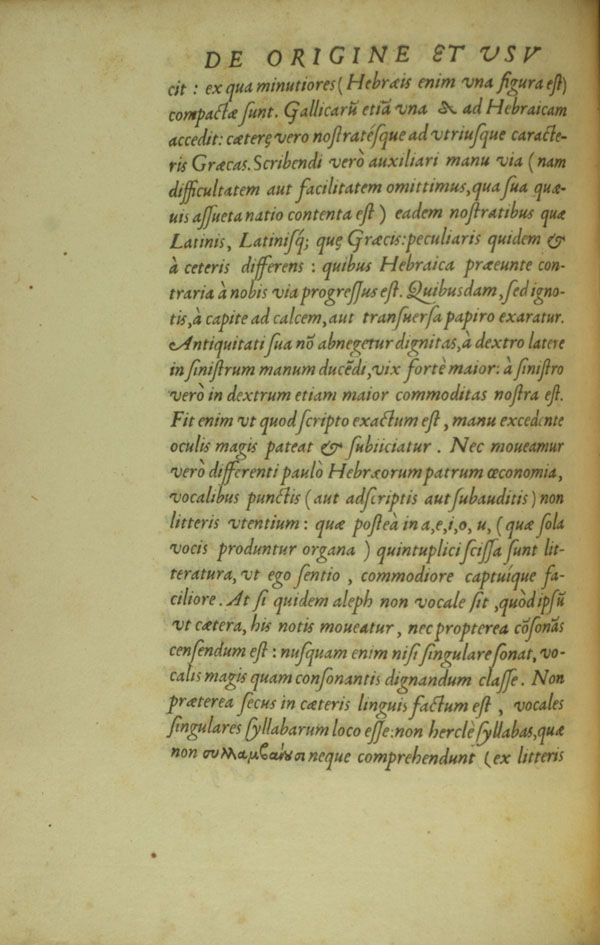 DE ORIGINE ET VSV
cit : ex qua minutiores ( Hebræis enim vna figura eſt)
compactæ ſunt. Gallicarũ etiã vna & ad Hebraicam
accedit: cæterę vero noſtratéſque ad vtriuſque caracte-
ris Græcas. Scribendi verò auxiliari manu via ( nam
difficultatem aut facilitatem omittimus, qua ſua quæ-
uis aſſueta natio contenta eſt ) eadem noſtratibus quæ
Latinis, Latiniſq́; quę Græcis: peculiaris quidem &
à ceteris differens : quibus Hebraica præeunte con-
traria à nobis via progreſſus eſt. Quibusdam, ſed igno-
tis, à capite ad calcem, aut tranſuerſa papiro exaratur.
Antiquitati ſua nõ abnegetur dignitas, à dextro latere
in ſiniſtrum manum ducẽdi, vix fortè maior: à ſiniſtro
verò in dextrum etiam maior commoditas noſtra eſt.
Fit enim vt quod ſcripto exactum eſt, manu excedente
oculis magis pateat & ſubiiciatur . Nec moueamur
verò differenti paulò Hebræorum patrum œconomia,
vocalibus punctis ( aut adſcriptis aut ſubauditis ) non
litteris vtentium : quæ poſteà in a, e, i, o, u, ( quæ ſola
vocis produntur organa ) quintuplici ſciſſa ſunt lit-
teratura, vt ego ſentio , commodiore captuíque fa-
ciliore. At ſi quidem aleph non vocale ſit , quòd ipſũ
vt cætera, his notis moueatur , nec propterea cõſonãs
cenſendum eſt : nuſquam enim niſi ſingulare ſonat, vo-
calis magis quam conſonantis dignandum claſſe. Non
præterea ſecus in cæteris linguis factum eſt , vocales
ſingulares ſyllabarum loco eſſe: non herclè ſyllabas, quæ
non συλλαμβάνουσι neque comprehendunt (ex litteris